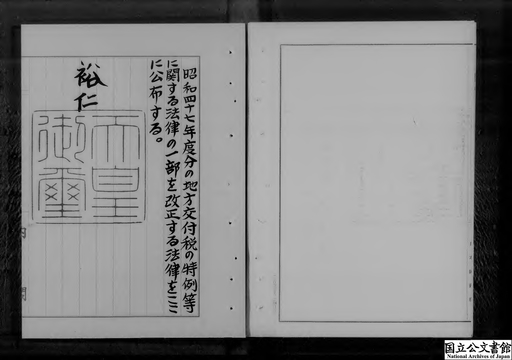 昭和四十七年度分の地方交付税の特例等
に関する法律の一部を改正する法律をここ
に公布する。
裕仁
天皇
御璽
内
閣
国立公文書館
National Archives of Japan